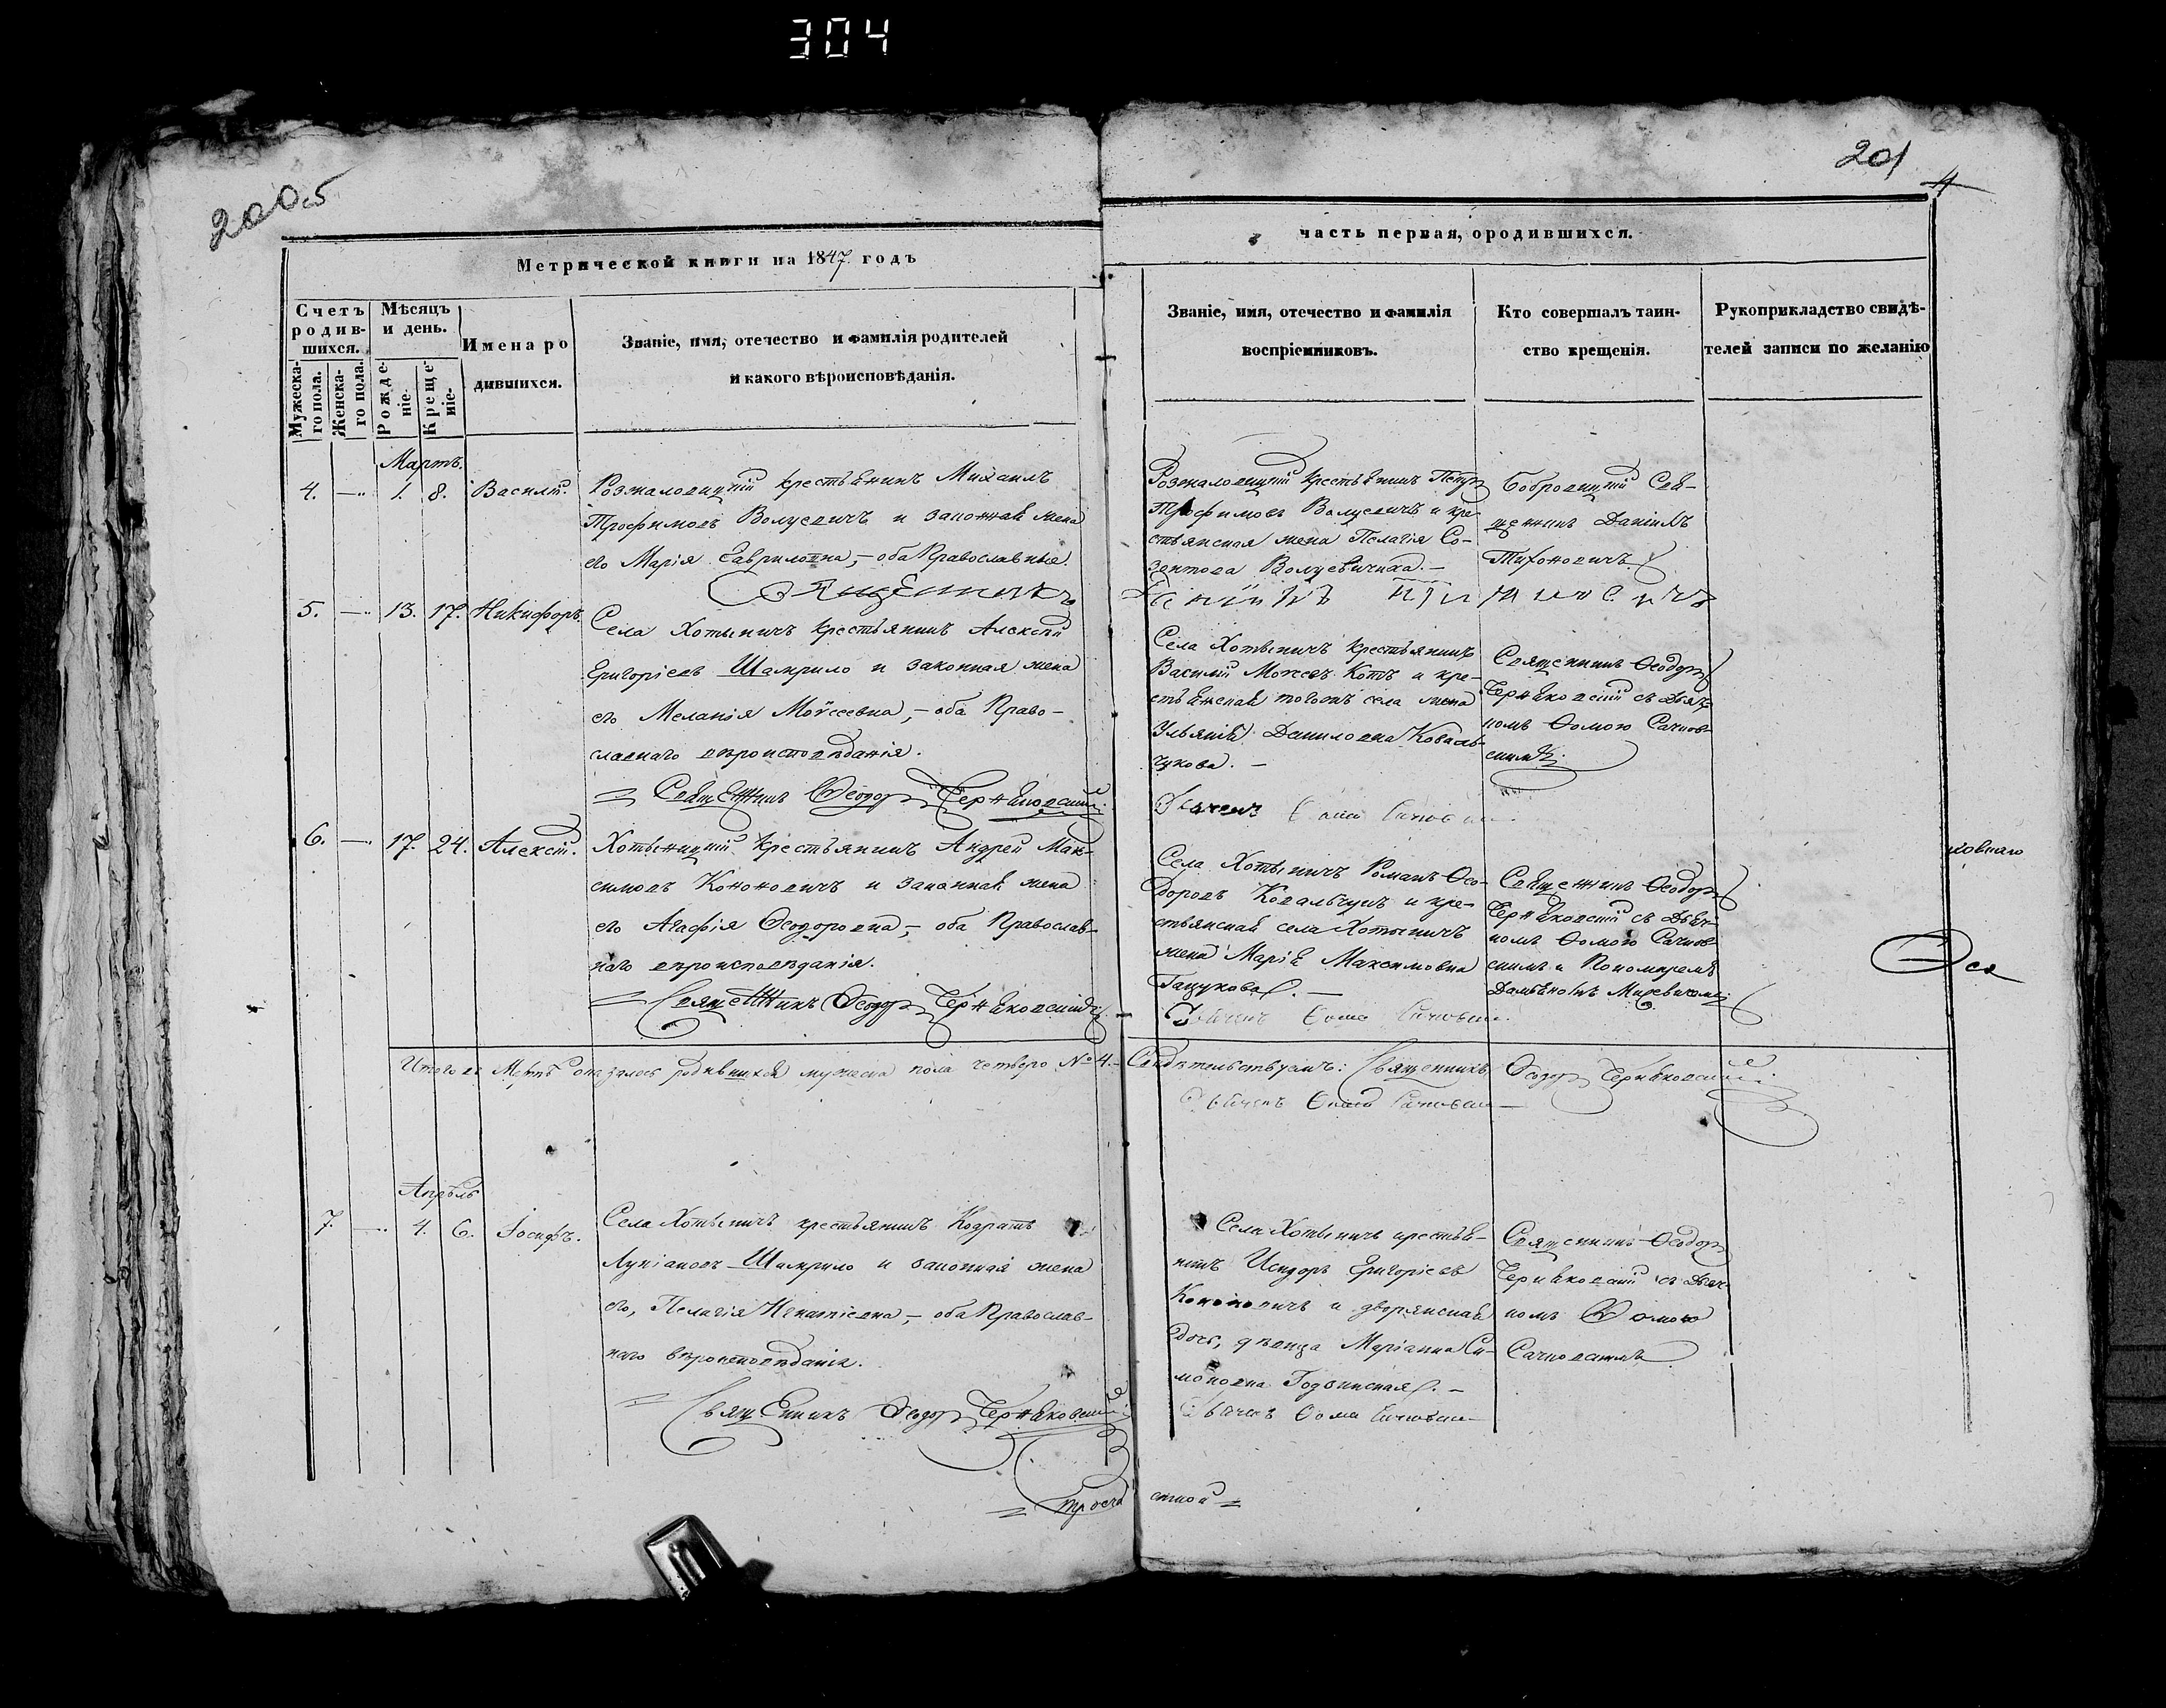 304
200 5
201
4
Метрической книги на 1847 годъ
часть первая, ородившихся.
Счетъ родив-шихся.
Мужеска-го пола.
Женска-го пола.
Мѣсяцъ и день.
Рожде-ніе.
Креще-ніе.
Имена ро
дившихся.
Званіе, имя, отечество и фамилія родителей
и какого вѣроисповѣданія.
Званіе, имя, отечество и фамилія
воспріемниковъ.
Кто совершалъ таин-
ство крещенія.
Рукоприкладство свидѣ-
телей записи по желанію
Мартъ.
4. — 1. 8. Василій.
крестьянинъ Михаилъ
Трофимовъ Волуевичъ и законная жена
его Марія Гавриловна, — оба Православные.
крестьянинъ Петръ
Трофимовъ Волуевичъ и кре-
стьянская жена Пелагія
Волуевичика. —
Бобровицкій Свя-
щенникъ Даніилъ
Тихоновичъ
5. — 13. 17. Никифоръ.
Села Хотыничъ крестьянинъ Алексѣй
Григоріевъ Шамрило и законная жена
его Меланія Моѵсеевна, — оба Право-
славнаго вѣроисповѣданія.
= Священникъ Ѳеодоръ Черняковскій
Села Хотыничъ крестьянинъ
Василій Котъ и кре-
стьянская тогожъ села жена
Ульянія Даниловна Коваль-
чукова. —
Дьячекъ Ѳома
Священникъ Ѳеодоръ
Черняковскій съ Дьяч-
комъ Ѳомою Сачков-
скимъ.
6. — 17. 24. Алексій.
Хотыницкій крестьянинъ Андрей Мак-
симовъ Кононовичъ и законная жена
его Агафія Ѳеодоровна, — оба Православ-
наго вѣроисповѣданія.
= Священникъ Ѳеодоръ Черняковскій
Села Хотыничъ Романъ Ѳео-
доровъ Ковальчукъ и кре-
стьянская села Хотыничъ
жена Марія Максимовна
Гацукова. —
Дьячекъ Ѳома
Священникъ Ѳеодоръ
Черняковскій съ Дьяч-
комъ Ѳомою Сачков-
скимъ и Пономаремъ
ховнаго
Итого въ Мартѣ оказалось родившихся мужеска пола четверо № 4. — Свидѣтельствуемъ: Священникъ Ѳеодоръ Черняковскій
Дьячекъ Ѳома
Апрѣль
7. — 4. 6. Іосифъ.
Села Хотыничъ крестьянинъ Кодратъ
Лукіановъ Шамрило и законная жена
его, Пелагія Игнатіевна, — оба Православ-
наго вѣроисповѣданія.
= Священникъ Ѳеодоръ Черняковскій
Села Хотыничъ крестья-
нинъ Исидоръ Григоріевъ
Кононовичъ и дворянская
дочь, дѣвица Маріанна Си-
моновна Годвинская. —
Дьячекъ Ѳома
Священникъ Ѳеодоръ
Черняковскій съ Дьяч-
комъ Ѳомою
Сачковскимъ